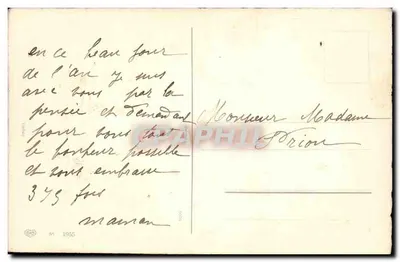 en ce beau jour
de l'an je suis
avec vous par la
pensée et demandant
pour vous tout
le bonheur possible
et vous embrasse
379 fois
maman
Monsieur Madame
Prion
CPAPHIL